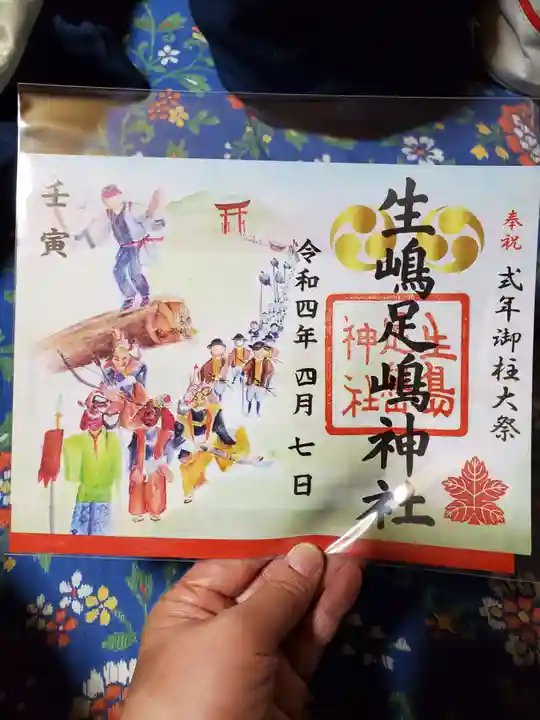 奉祝
式年御柱大祭
生嶋足嶋神社
生島足島神社
令和四年四月七日
壬寅